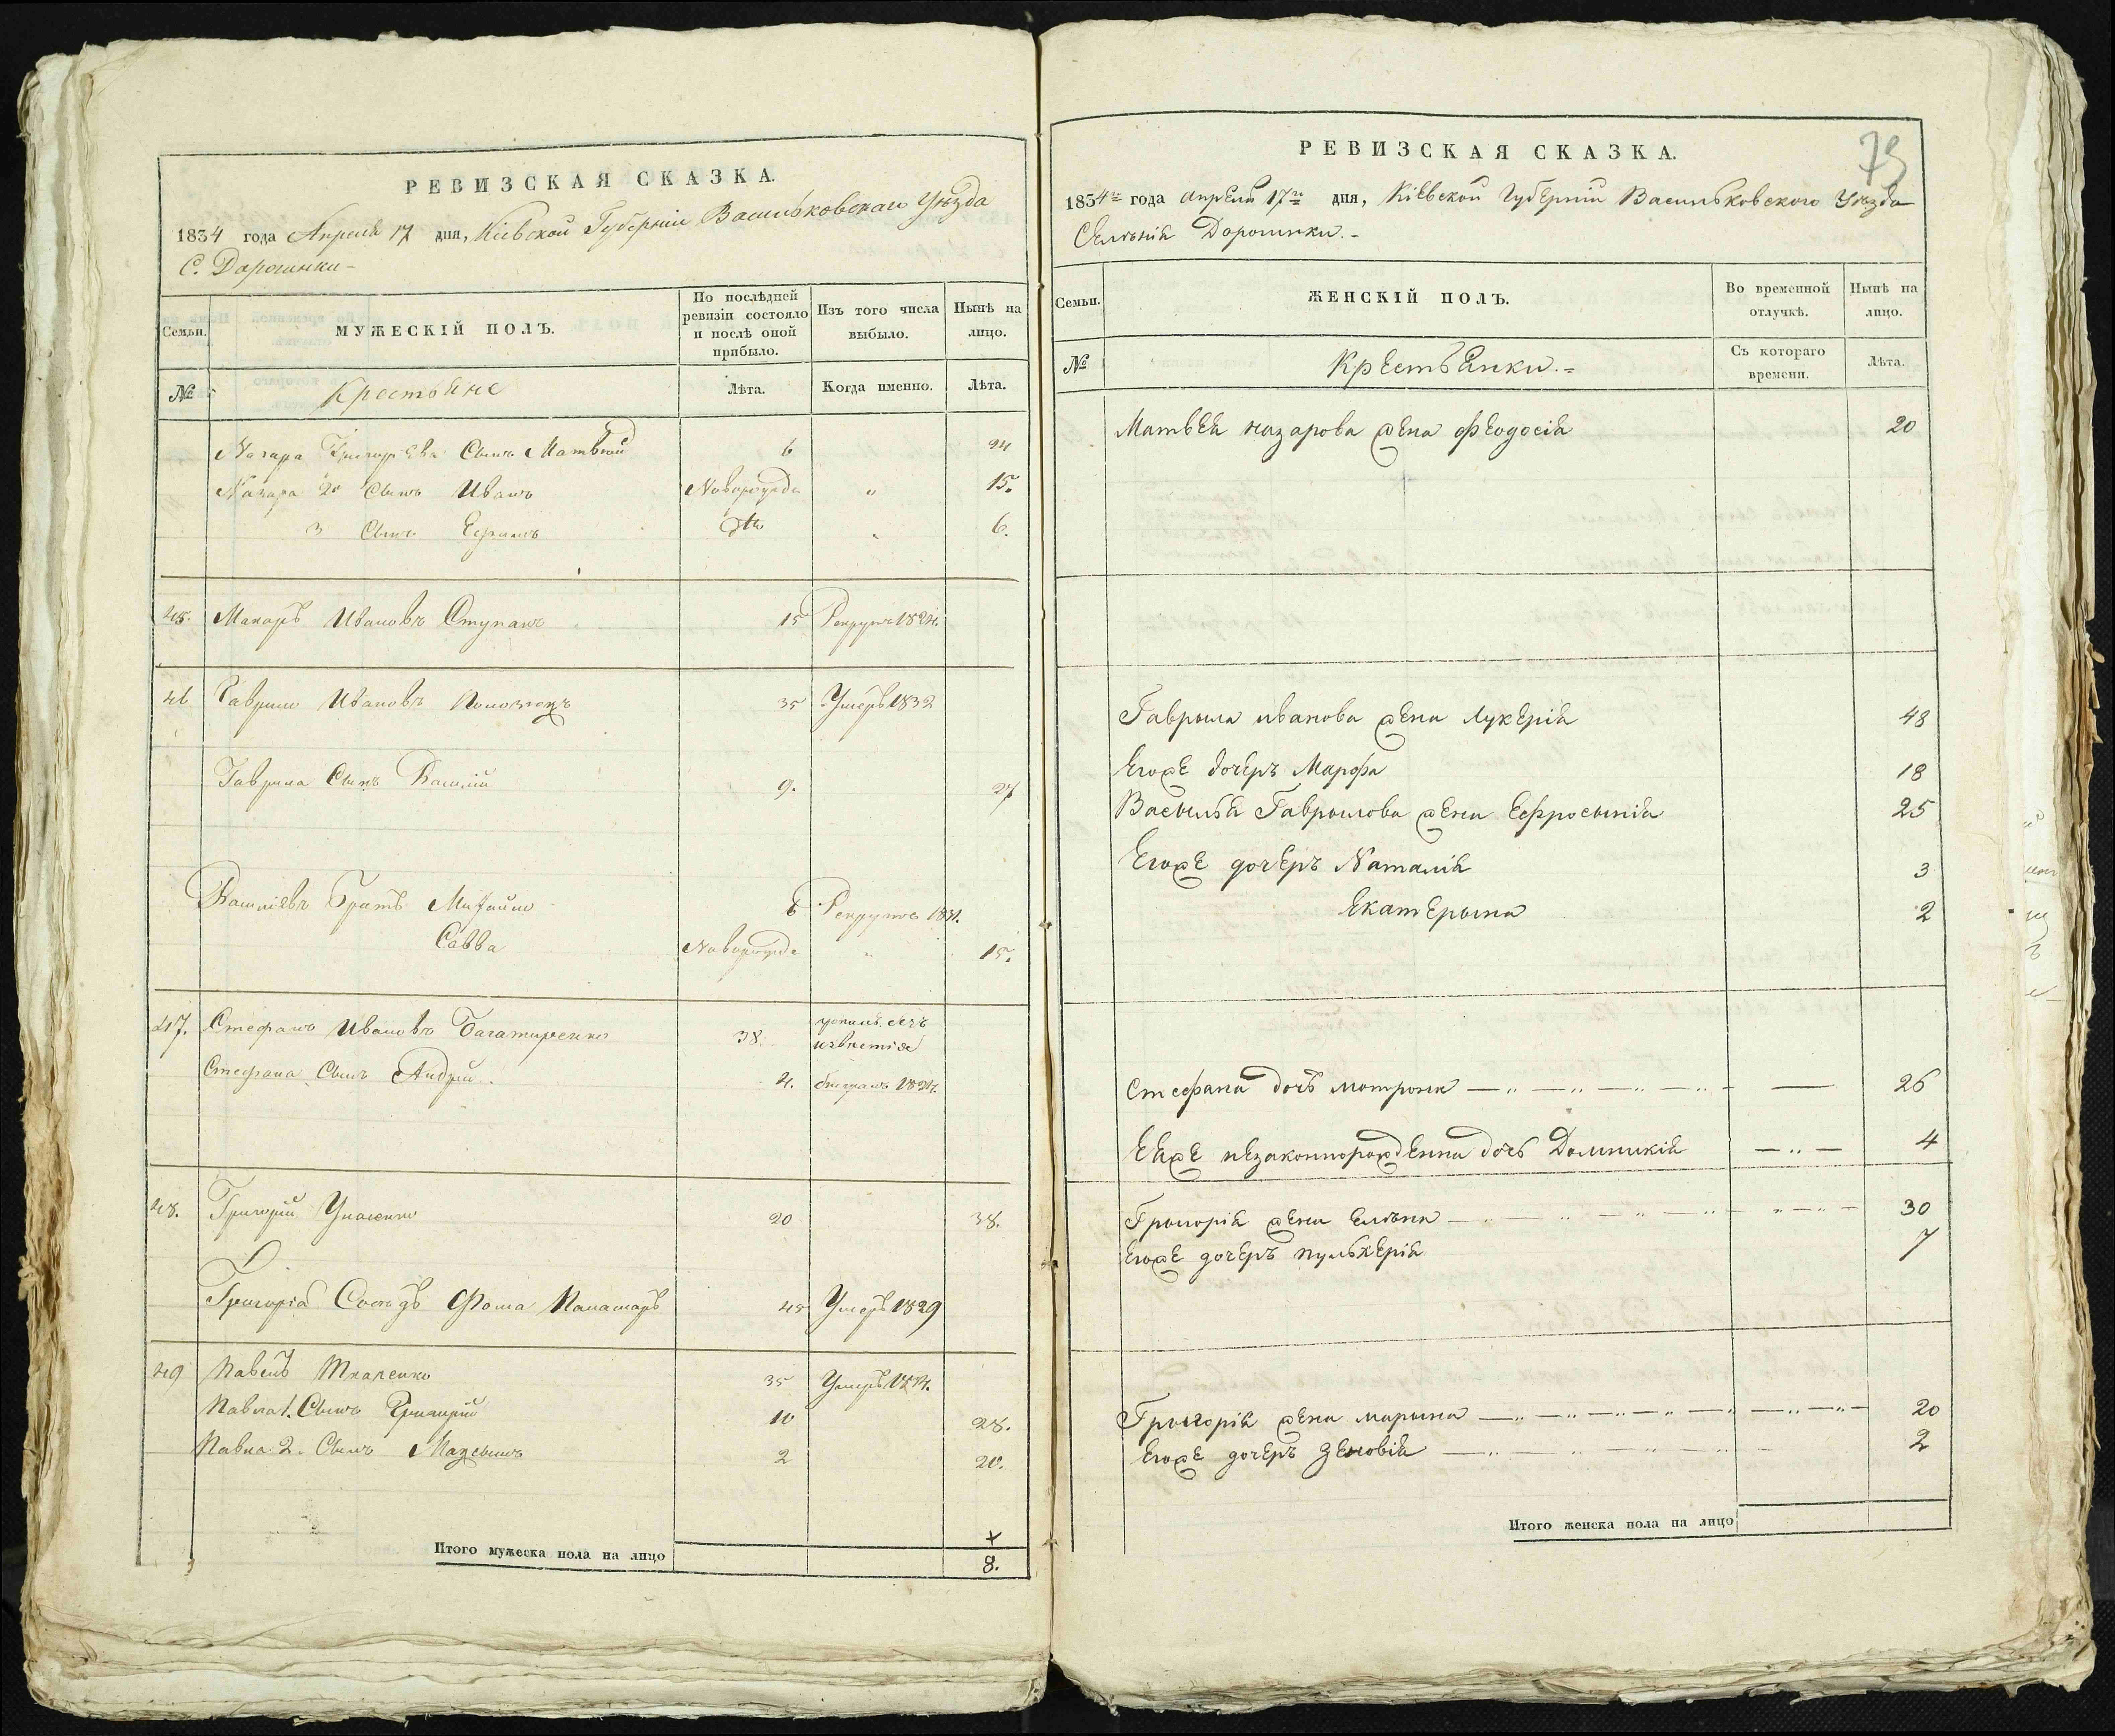 РЕВИЗСКАЯ СКАЗКА.
1834 года Апреля 17 дня, Кіевской Губерніи Васильковскаго Уѣзда
С. Дорогинки
Семьи.
МУЖЕСКІЙ ПОЛЪ.
По послѣдней ревизіи состояло и послѣ оной прибыло.
Изъ того числа выбыло.
Нынѣ на лицо.
№
Крестьяне
Лѣта.
Когда именно.
Лѣта.
Назара Григорьева Сынъ Матвѣй 6 24
Назара 2й Сынъ ИванъНоворожде " 15.
3 Сынъ Ефимъ 6.
45. Макаръ Ивановъ Ступакъ 15 Рекрутъ 1824.
46 Гаврило Ивановъ 35 Умеръ 1832
Гаврила Сынъ Василій 9. 27
Василіевъ Братъ Михайло 6 Рекрутъ
Савва Новорожде " 15.
47. Стефанъ Ивановъ Багатиренко 38. безъ извѣстія
Стефана Сынъ Андрій 4. 1824.
48. Григорій 20 38.
Григорія Сосѣдъ Фома Паламарь 45 Умеръ 1829
49 Павелъ Ткаченко 35 Умеръ
Павла 1. Сынъ Григорій 10 28.
Павла 2. Сынъ Максымъ 2 20.
Итого мужеска пола на лицо 8.
РЕВИЗСКАЯ СКАЗКА.
1834го года апреля 17го дня, Кіевской Губерніи Васильковского Уѣзда
Селѣнія Дорогинки.
Семьи.
ЖЕНСКІЙ ПОЛЪ.
Во временной отлучкѣ.
Нынѣ на лицо.
№
Крестьянки.
Съ котораго времени.
Лѣта.
Матвея назарова жена феодосія 20
Гаврыла иванова жена Лукерія 48
Егоже дочеръ Марфа 18
Васылья Гаврылова жена Ефросынія 25
Егоже дочеръ Наталія 3
Екатерына 2
Стефана дочь мотрона 26
Еяже незаконнорожденна дочь Домникія 4
Грыгорія жена елѣна 30
Егоже дочеръ пулькерія 7
Грыгорія жена марына 20
Егоже дочеръ Зеновія 2
Итого женска пола на лицо